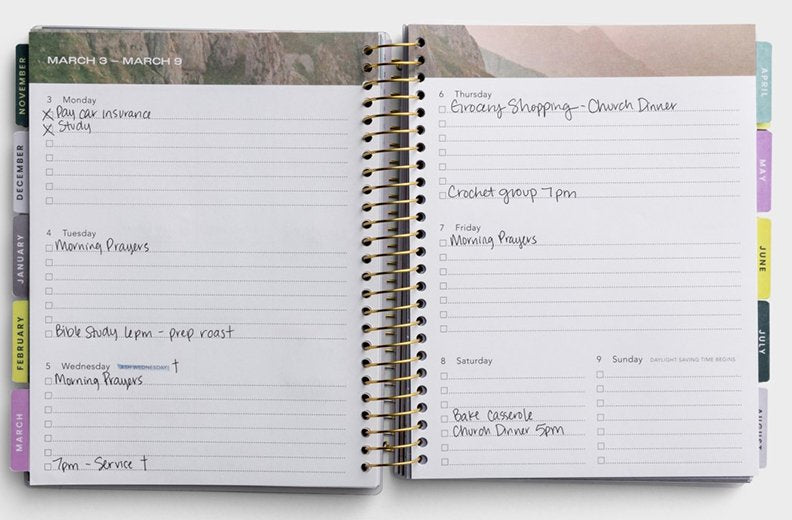 MARCH 3 – MARCH 9
3 Monday
Pay car insurance
Study
4 Tuesday
Morning Prayers
Bible Study 6pm - prep roast
5 Wednesday (ASH WEDNESDAY) †
Morning Prayers
7pm - Service †
6 Thursday
Grocery Shopping - Church Dinner
Crochet group 7pm
7 Friday
Morning Prayers
8 Saturday
Bake Casserole
Church Dinner 5pm
9 Sunday DAYLIGHT SAVING TIME BEGINS
NOVEMBER
DECEMBER
JANUARY
FEBRUARY
MARCH
APRIL
MAY
JUNE
JULY
AUGUST